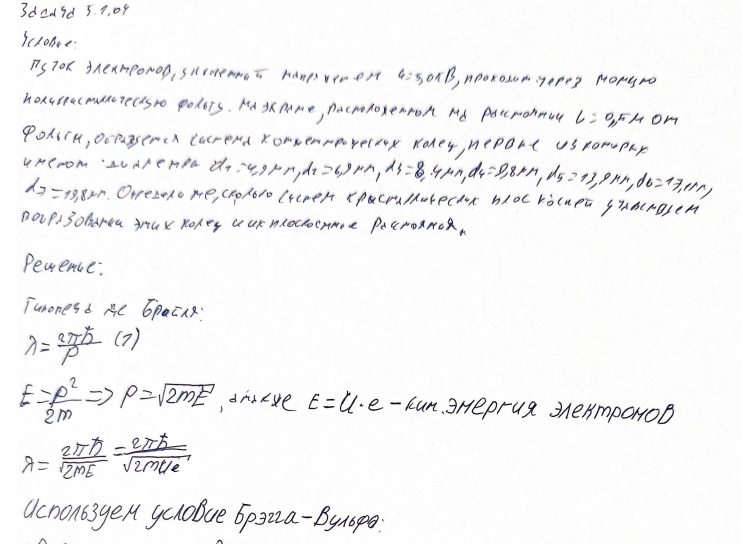 Задача 5.1.04
Условие:
Поток электронов, ускоренный напряжением U=3,0кВ, проходит через тонкую
поликристаллическую фольгу. На экране, расположенном на расстоянии L=0,5м от
фольги, образуется система концентрических колец, первые из которых
имеют диаметры d₁=4,9мм, d₂=6,9мм, d₃=8,4мм, d₄=9,8мм, d₅=13,9мм, d₆=17,1мм,
d₇=19,8мм. Определите, сколько систем кристаллических плоскостей участвует
в образовании этих колец и их плоскостное расстояния.
Решение:
Гипотеза де Бройля:
λ = 2πħ/p (1)
E = p²/2m => p = √2mE, также E = U·e - кин. энергия электронов
λ = 2πħ/√2mE = 2πħ/√2mUe
Используем условие Брэгга-Вульфа: